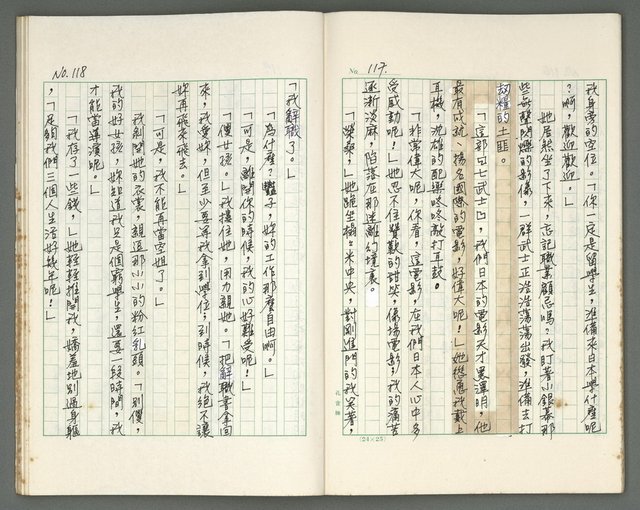 No. 117.
我身旁的空位。「你一定是留學生，準備來日本學什麼呢
？啊，歡迎歡迎。」
她居然坐了下來，忘記職業顧忌嗎？我盯著小銀幕那
些音聲閃爍的影像，一群武士正浩浩蕩蕩出發，準備去打
劫糧的土匪。
「這部《七武士》，我們日本的電影天才黑澤明，他
最有成就、揚名國際的電影，好偉大呢！」她從為我戴上
耳機，沈雄的配樂咚咚敲打耳鼓。
「非常偉大呢！你看，這電影，在我們日本人心中多
受感動呢！」她忍不住贊歎的甜笑，像場電影，我的痛苦
逐漸淡麻，陷落在那迷離幻境裏。
「榮桑，」她跪坐榻榻米中央，對剛進門的我笑著，
(24×25)
No. 118
「我辭職了。」
「為什麼？豔子，妳的工作那麼自由啊。」
「可是，離開你的時候，我的心好難受呢！」
「傻女孩。」我摟住她，用力親她。「把辭職書拿回
來，我愛妳，但至少要等我拿到學位；到時候，我絕不讓
妳再飛來飛去。」
「可是，我不能再當空姐了。」
我剝開她的衣裳，親這那小小的粉紅乳頭。「別傻，
我的好女孩，妳知道我只是個窮學生，還要一段時間，我
才能當導演呢。」
「我存了一些錢，」她輕輕推開我，嬌羞地別過身軀
，「足夠我們三個人生活好幾年呢！」